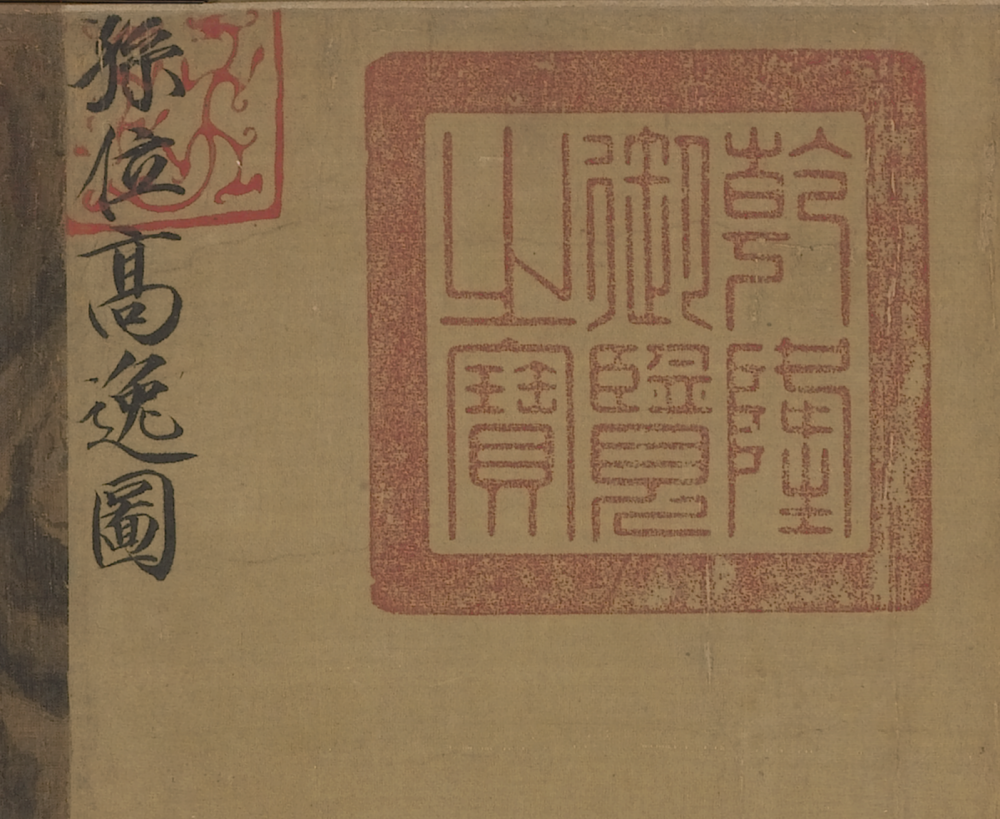 乾隆
御覽
之寶
孫位高逸圖